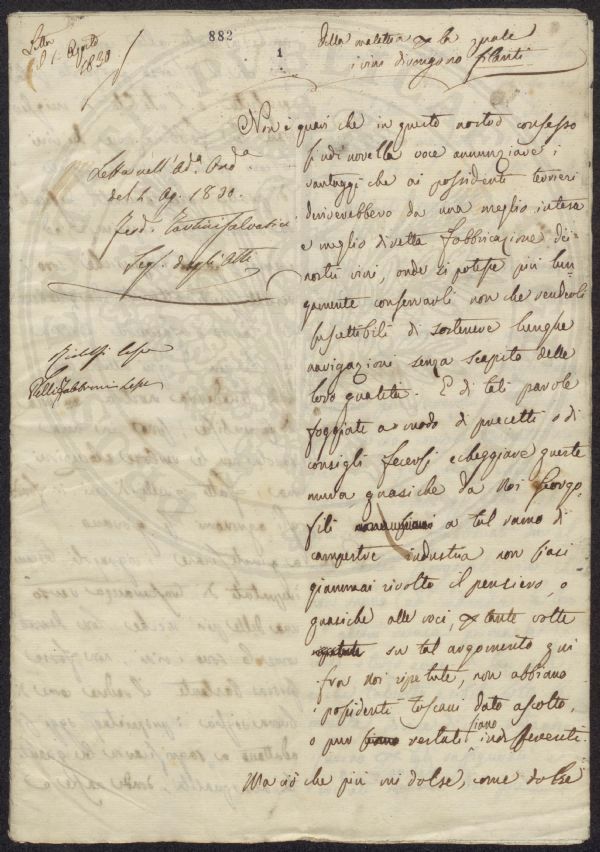 Letta
il 1. Agosto
1830
882
1
Della malattia per la quale
i vini divengono filanti
Non è guari che in questo nostro consesso
si udì novella voce annunziare i
vantaggi che ai possidenti terrieri
deriverebbero da una meglio intesa
e meglio diretta fabbricazione dei
nostri vini, onde si potesse più lun-
gamente conservarli non che renderli
suscettibili di sostenere lunghe
navigazioni senza scapito delle
loro qualità. E di tali parole
foggiate a modo di precetti o di
consigli fecersi echeggiare queste
mura quasiche da noi Georgo-
fili a tal ramo di
campestre industria non siasi
giammai rivolto il pensiero, o
quasiche alle voci, per tante volte
su tal argomento qui
fra noi ripetute, non abbiano
i possidenti Toscani dato ascolto,
o pur siano restati indifferenti.
Ma ciò che più mi dolse, come dolse
Letta nell'Ad.a Ord.a
del 1. Ag. 1830.
Ferd. Tartini Salvatici
Seg. degli Atti
Ridolfi Cesre
Pelli Fabbroni Lesse